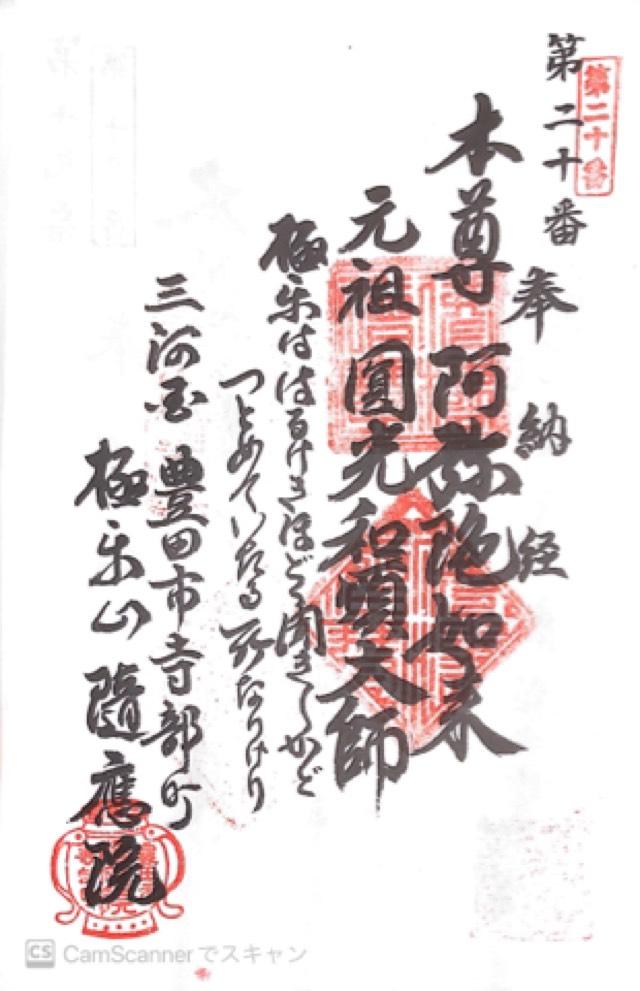 第二十番
第二十番
奉納経
本尊阿弥陀如来
元祖圓光和順大師
極楽ははるけきほどと聞きしかど
つとめていたる所なりけり
三河国豊田市寺部町
極楽山隨應院
CS CamScannerでスキャン